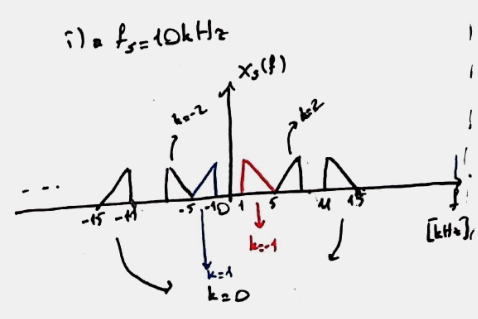 i) a fs=10kHz
Xs(f)
k=-2
k=2
...
-15 -11 -5 -1 0 1 5 11 15
f
[kHz]
k=1
k=-1
k=0